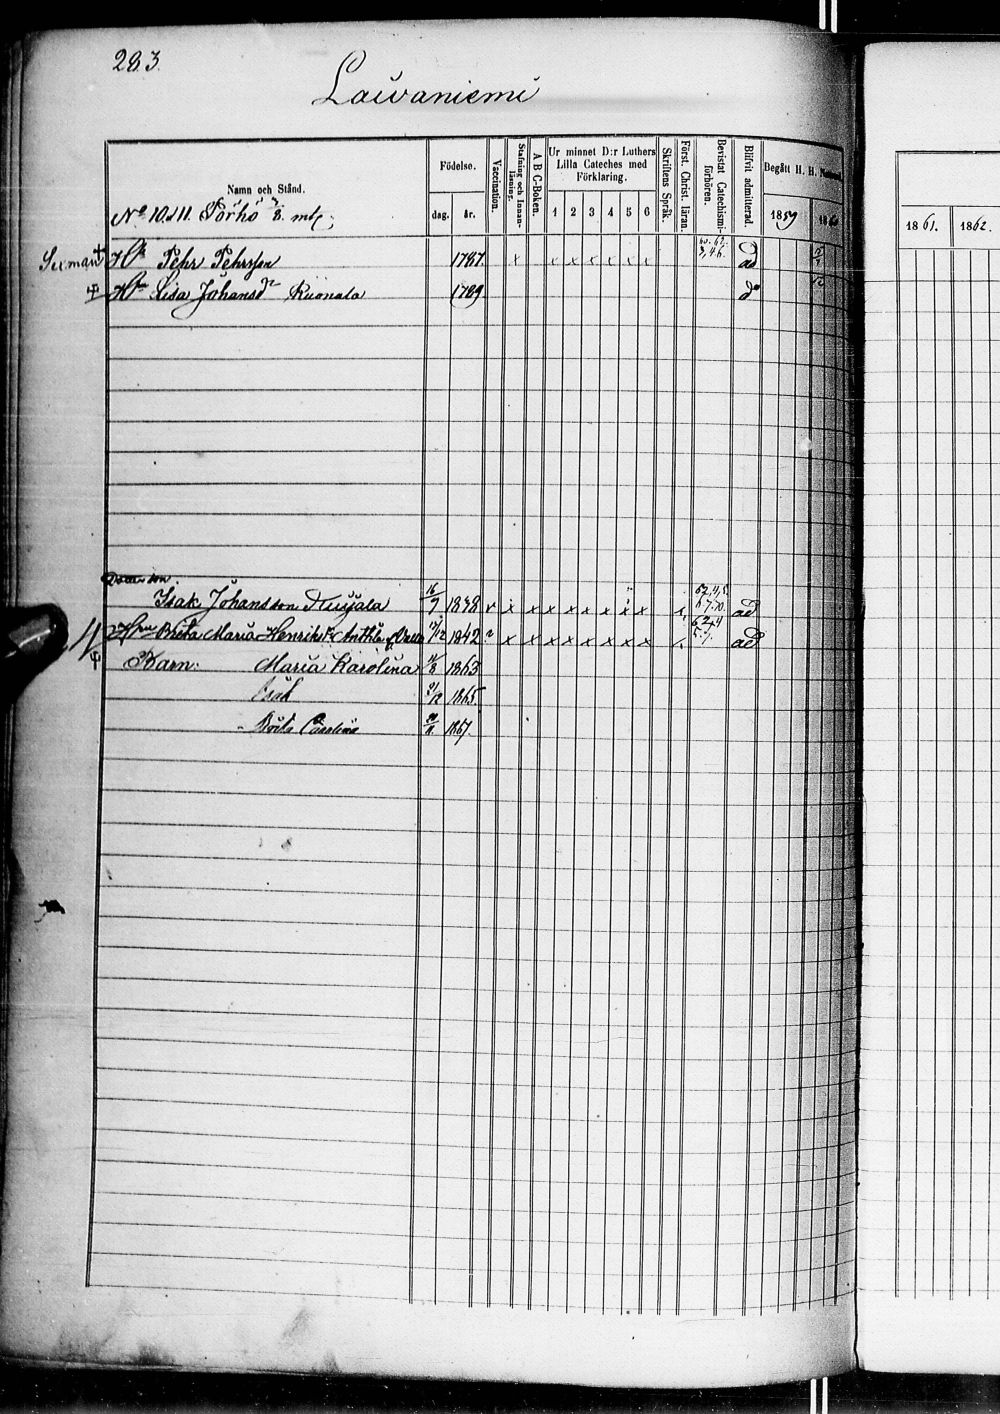 283.
Laivaniemi
Namn och Stånd.
Födelse.
dag. år.
Vaccination.
Stafning och Innanläsning.
A B C-Boken.
Ur minnet D:r Luthers
Lilla Cateches med
Förklaring.
1 2 3 4 5 6
Skriftens Språk.
Först. Christ. läran.
Bevistat Catechismiförhören.
Blifvit admitterad.
Begått H. H.
1859
1861. 1862.
No 10 & 11. Pörhö mtl;
Pehr Pehrsson 1787. x x x x x x x ad
Lisa Johansd:r Ruonala 1789 d:o
Isak Johansson 16/7 1838 x x x x x x x x x ad
Brita Maria Henriksd:r Anttila 1842 ? x x x x x x x x ad
Barn: Maria Karolina 11/8 1863
Isak 9/12 1865.
Brita Carolina 1867.